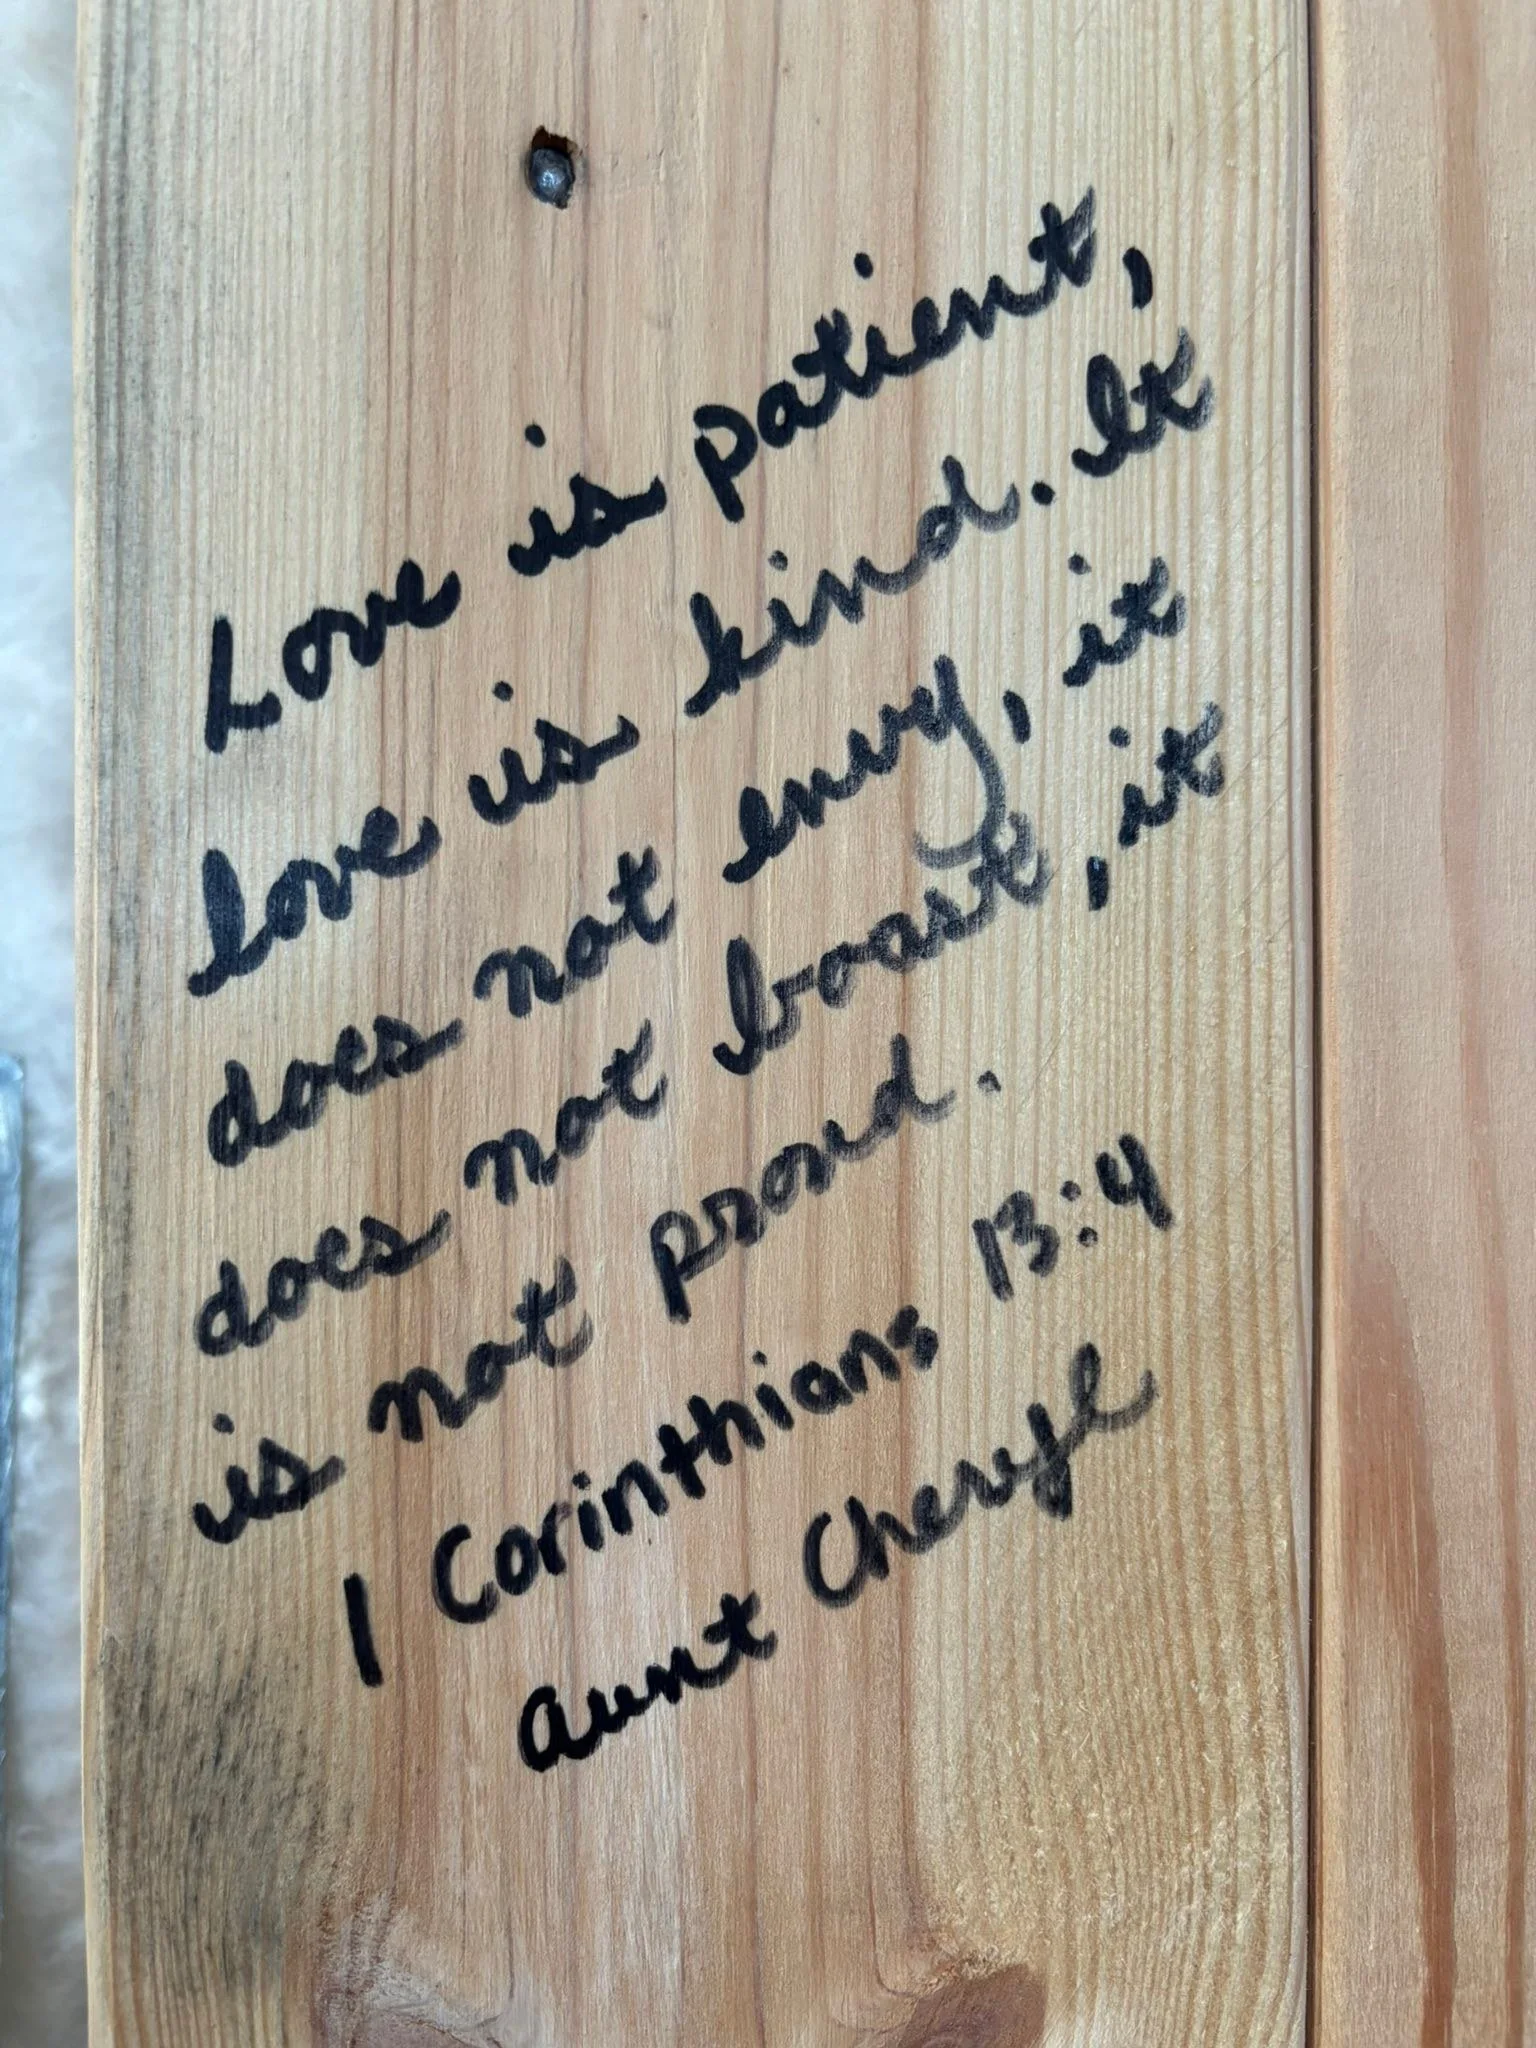 Love is patient,
love is kind. It
does not envy, it
does not boast, it
is not proud.
1 Corinthians 13:4
Aunt Cheryl